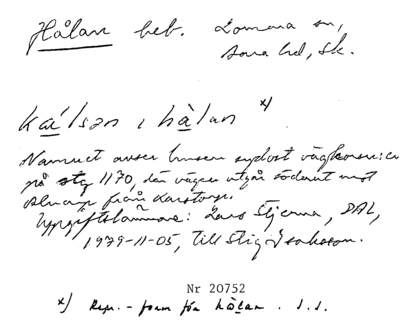 Hålan beb. Lomma sn,
Bara hd, Sk.
kálson i hàlan x)
Namnet avser husen sydost vägkorsn:en
på stg 1170, där vägen utgår söderut mot
Alnarp från Karstorp.
Uppgiftslämnare: Lars Stjerna, DAL,
1979-11-05, till Stig Isaksson.
Nr 20752
x) Rep.-form för hålan. S.I.